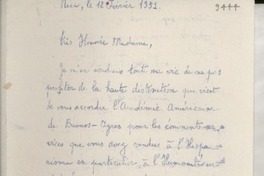 Nice, le 12 Février 1952.
9444
Très Honorée Madame,
Je m'en voudrais toute ma vie de ne pas
de la haute distinction que vient
de vous accorder l'Académie Américaine
de Buenos-Ayres pour les éminents ser-
vices que vous avez rendus à l'Hispa-
nisme en particulier, à l'